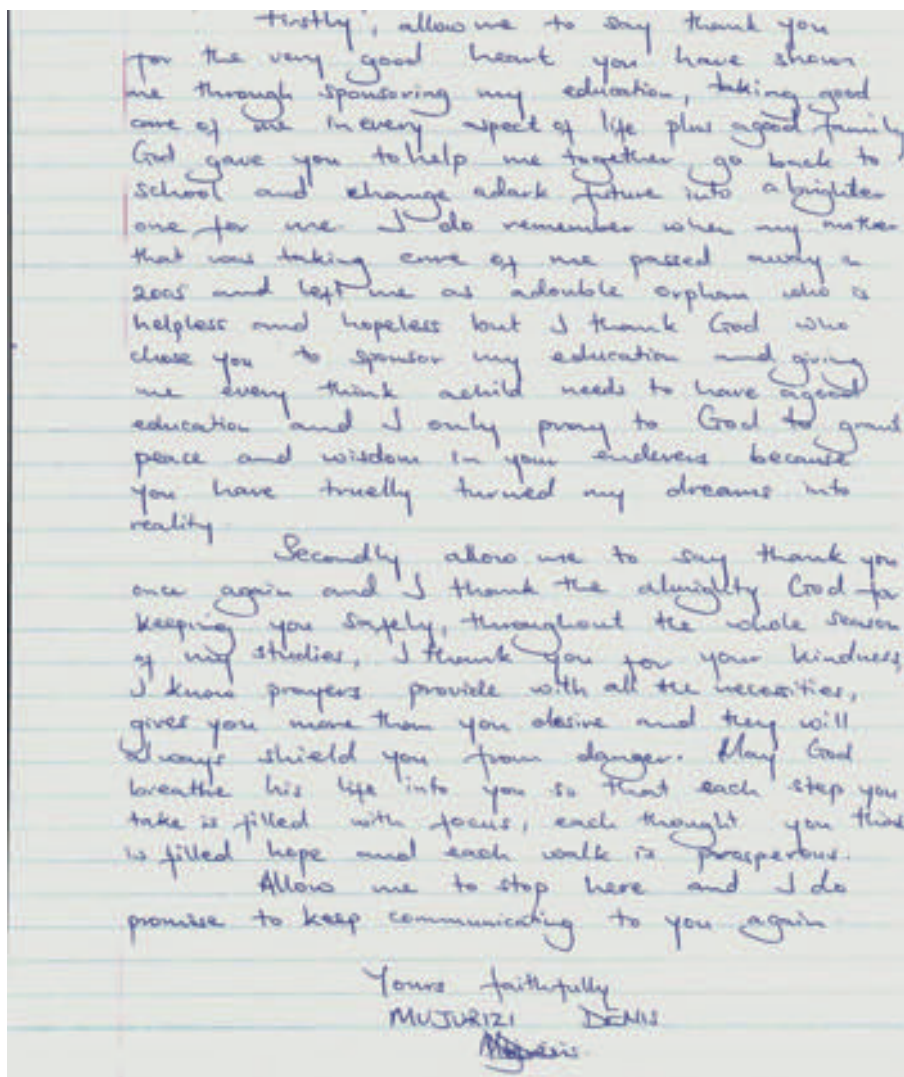 Firstly, allow me to say thank you
for the very good heart you have shown
me through sponsoring my education, taking good
care of me in every aspect of life plus a good family
God gave you to help me together, go back to
school and change a dark future into a brighter
one for me. I do remember when my mother
that was taking care of me passed away in
2005 and left me as a double orphan who is
helpless and hopeless but I thank God who
chose you to sponsor my education and giving
me every think a child needs to have a good
education and I only pray to God to grant
peace and wisdom in your endevers because
you have truelly turned my dreams into
reality.
Secondly allow me to say thank you
once again and I thank the almighty God for
keeping you safely, throughout the whole season
of my studies, I thank you for your kindness,
I know prayers provide with all the necessities,
gives you more than you desire and they will
always shield you from danger. May God
breathe his life into you so that each step you
take is filled with focus, each thought you
is filled hope and each walk is prosperous.
Allow me to stop here and I do
promise to keep communicating to you again
Yours faithfully
MUJURIZI DENIS